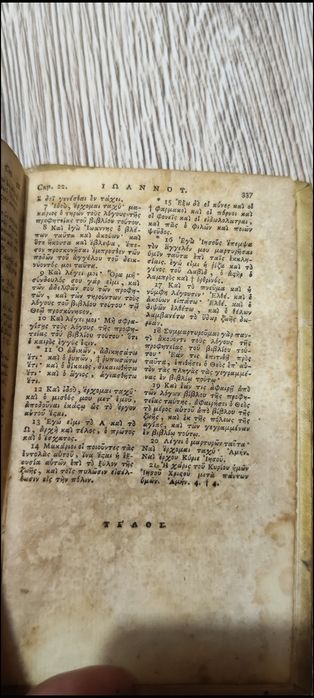 Cap. 22. ΙΩΑΝΝΟΥ. 337
ἃ δεῖ γενέσθαι ἐν τάχει.
7 Ἰδοὺ, ἔρχομαι ταχύ· μα-
κάριος ὁ τηρῶν τοὺς λόγους τῆς
προφητείας τοῦ βιβλίου τούτου.
8 Καὶ ἐγὼ Ἰωάννης ὁ βλέ-
πων ταῦτα καὶ ἀκούων· καὶ
ὅτε ἤκουσα καὶ ἔβλεψα, ἔπε-
σον προσκυνῆσαι ἔμπροσθεν τῶν
ποδῶν τοῦ ἀγγέλου τοῦ δεικ-
νύοντός μοι ταῦτα.
9 Καὶ λέγει μοι· Ὅρα μή·
σύνδουλός σου γάρ εἰμι, καὶ
τῶν ἀδελφῶν σου τῶν προφη-
τῶν, καὶ τῶν τηρούντων τοὺς
λόγους τοῦ βιβλίου τούτου· τῷ
Θεῷ προσκύνησον.
10 Καὶ λέγει μοι· Μὴ σφρα-
γίσῃς τοὺς λόγους τῆς προφη-
τείας τοῦ βιβλίου τούτου· ὅτι
ὁ καιρὸς ἐγγύς ἐστιν.
11 Ὁ ἀδικῶν, ἀδικησάτω
ἔτι· καὶ ὁ ῥυπῶν, ῥυπωσάτω
ἔτι· καὶ ὁ δίκαιος, δικαιωθήτω
ἔτι· καὶ ὁ ἅγιος, ἁγιασθήτω
ἔτι.
12 Καὶ ἰδοὺ, ἔρχομαι ταχύ·
καὶ ὁ μισθός μου μετ' ἐμοῦ,
ἀποδοῦναι ἑκάστῳ ὡς τὸ ἔργον
αὐτοῦ ἔσται.
13 Ἐγώ εἰμι τὸ Α καὶ τὸ
Ω, ἀρχὴ καὶ τέλος, ὁ πρῶτος
καὶ ὁ ἔσχατος.
14 Μακάριοι οἱ ποιοῦντες τὰς
ἐντολὰς αὐτοῦ, ἵνα ἔσται ἡ ἐξ-
ουσία αὐτῶν ἐπὶ τὸ ξύλον τῆς
ζωῆς, καὶ τοῖς πυλῶσιν εἰσέλ-
θωσιν εἰς τὴν πόλιν.
15 Ἔξω δὲ οἱ κύνες καὶ οἱ
φαρμακοὶ καὶ οἱ πόρνοι καὶ
οἱ φονεῖς καὶ οἱ εἰδωλολάτραι,
καὶ πᾶς ὁ φιλῶν καὶ ποιῶν
ψεῦδος.
16 Ἐγὼ Ἰησοῦς ἔπεμψα
τὸν ἄγγελόν μου μαρτυρῆσαι
ὑμῖν ταῦτα ἐπὶ ταῖς ἐκκλη-
σίαις. ἐγώ εἰμι ἡ ῥίζα καὶ τὸ
γένος τοῦ Δαβὶδ, ὁ ἀστὴρ ὁ
λαμπρὸς καὶ ὀρθρινός.
17 Καὶ τὸ πνεῦμα καὶ ἡ
νύμφη λέγουσιν· Ἐλθέ. καὶ ὁ
ἀκούων εἰπάτω· Ἐλθέ. καὶ ὁ
διψῶν ἐλθέτω· καὶ ὁ θέλων
λαμβανέτω τὸ ὕδωρ ζωῆς δω-
ρεάν.
18 Συμμαρτυροῦμαι γὰρ παν-
τὶ ἀκούοντι τοὺς λόγους τῆς
προφητείας τοῦ βιβλίου τούτου·
Ἐάν τις ἐπιτιθῇ πρὸς
ταῦτα, ἐπιθήσει ὁ Θεὸς ἐπ' αὐ-
τὸν τὰς πληγὰς τὰς γεγραμμέ-
νας ἐν βιβλίῳ τούτῳ·
19 Καὶ ἐάν τις ἀφαιρῇ ἀπὸ
τῶν λόγων βίβλου τῆς προφη-
τείας ταύτης, ἀφαιρήσει ὁ Θεὸς
τὸ μέρος αὐτοῦ ἀπὸ βίβλου τῆς
ζωῆς, καὶ ἐκ τῆς πόλεως τῆς
ἁγίας, καὶ τῶν γεγραμμένων
ἐν βιβλίῳ τούτῳ.
20 Λέγει ὁ μαρτυρῶν ταῦτα·
Ναὶ ἔρχομαι ταχύ· Ἀμήν.
Ναὶ ἔρχου Κύριε Ἰησοῦ.
21 Ἡ χάρις τοῦ Κυρίου ἡμῶν
Ἰησοῦ Χριστοῦ μετὰ πάντων
ὑμῶν. Ἀμήν.
ΤΕΛΟΣ.